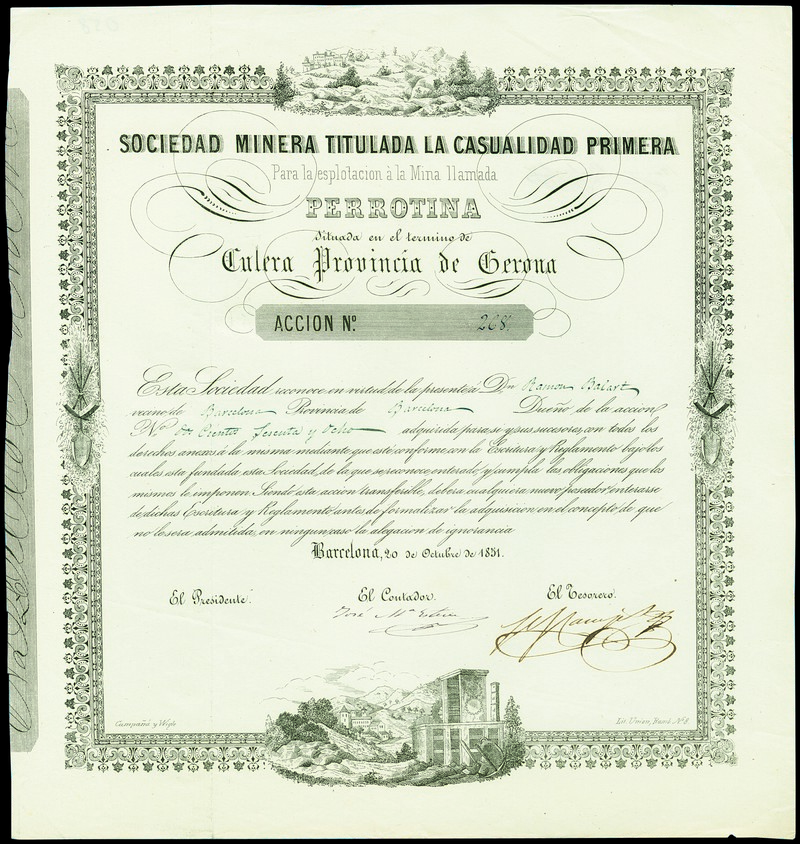 SOCIEDAD MINERA TITULADA LA CASUALIDAD PRIMERA
Para la esplotacion à la Mina llamada
PERROTINA
Situada en el termino de
Culera Provincia de Gerona
ACCION Nº 268.
Esta Sociedad reconoce en virtud de la presente á Dn Ramon Balart
vecino de Barcelona Provincia de Barcelona Dueño de la accion
Nº Dos Cientos Sesenta y Ocho adquirida para se y sus sucesores, con todos los
derechos anexos á la misma mediante que esté conforme con la Escritura y Reglamento bajo los
cuales esta fundada esta Sociedad, de la que se reconoce enterado y cumpla las obligaciones que los
mismos le imponen. Siendo esta accion transferible, debera cualquiera nuevo poseedor enterarse
de dichas Escritura y Reglamento antes de formalizar la adquisicion en el concepto de que
no le sera admitida en ningun caso la alegacion de ignorancia
Barcelona, 20 de Octubre de 1851.
El Presidente. El Contador. El Tesorero.
José Mª
Campañá y Wigle Lit. Union, Ramb. Nº 8.